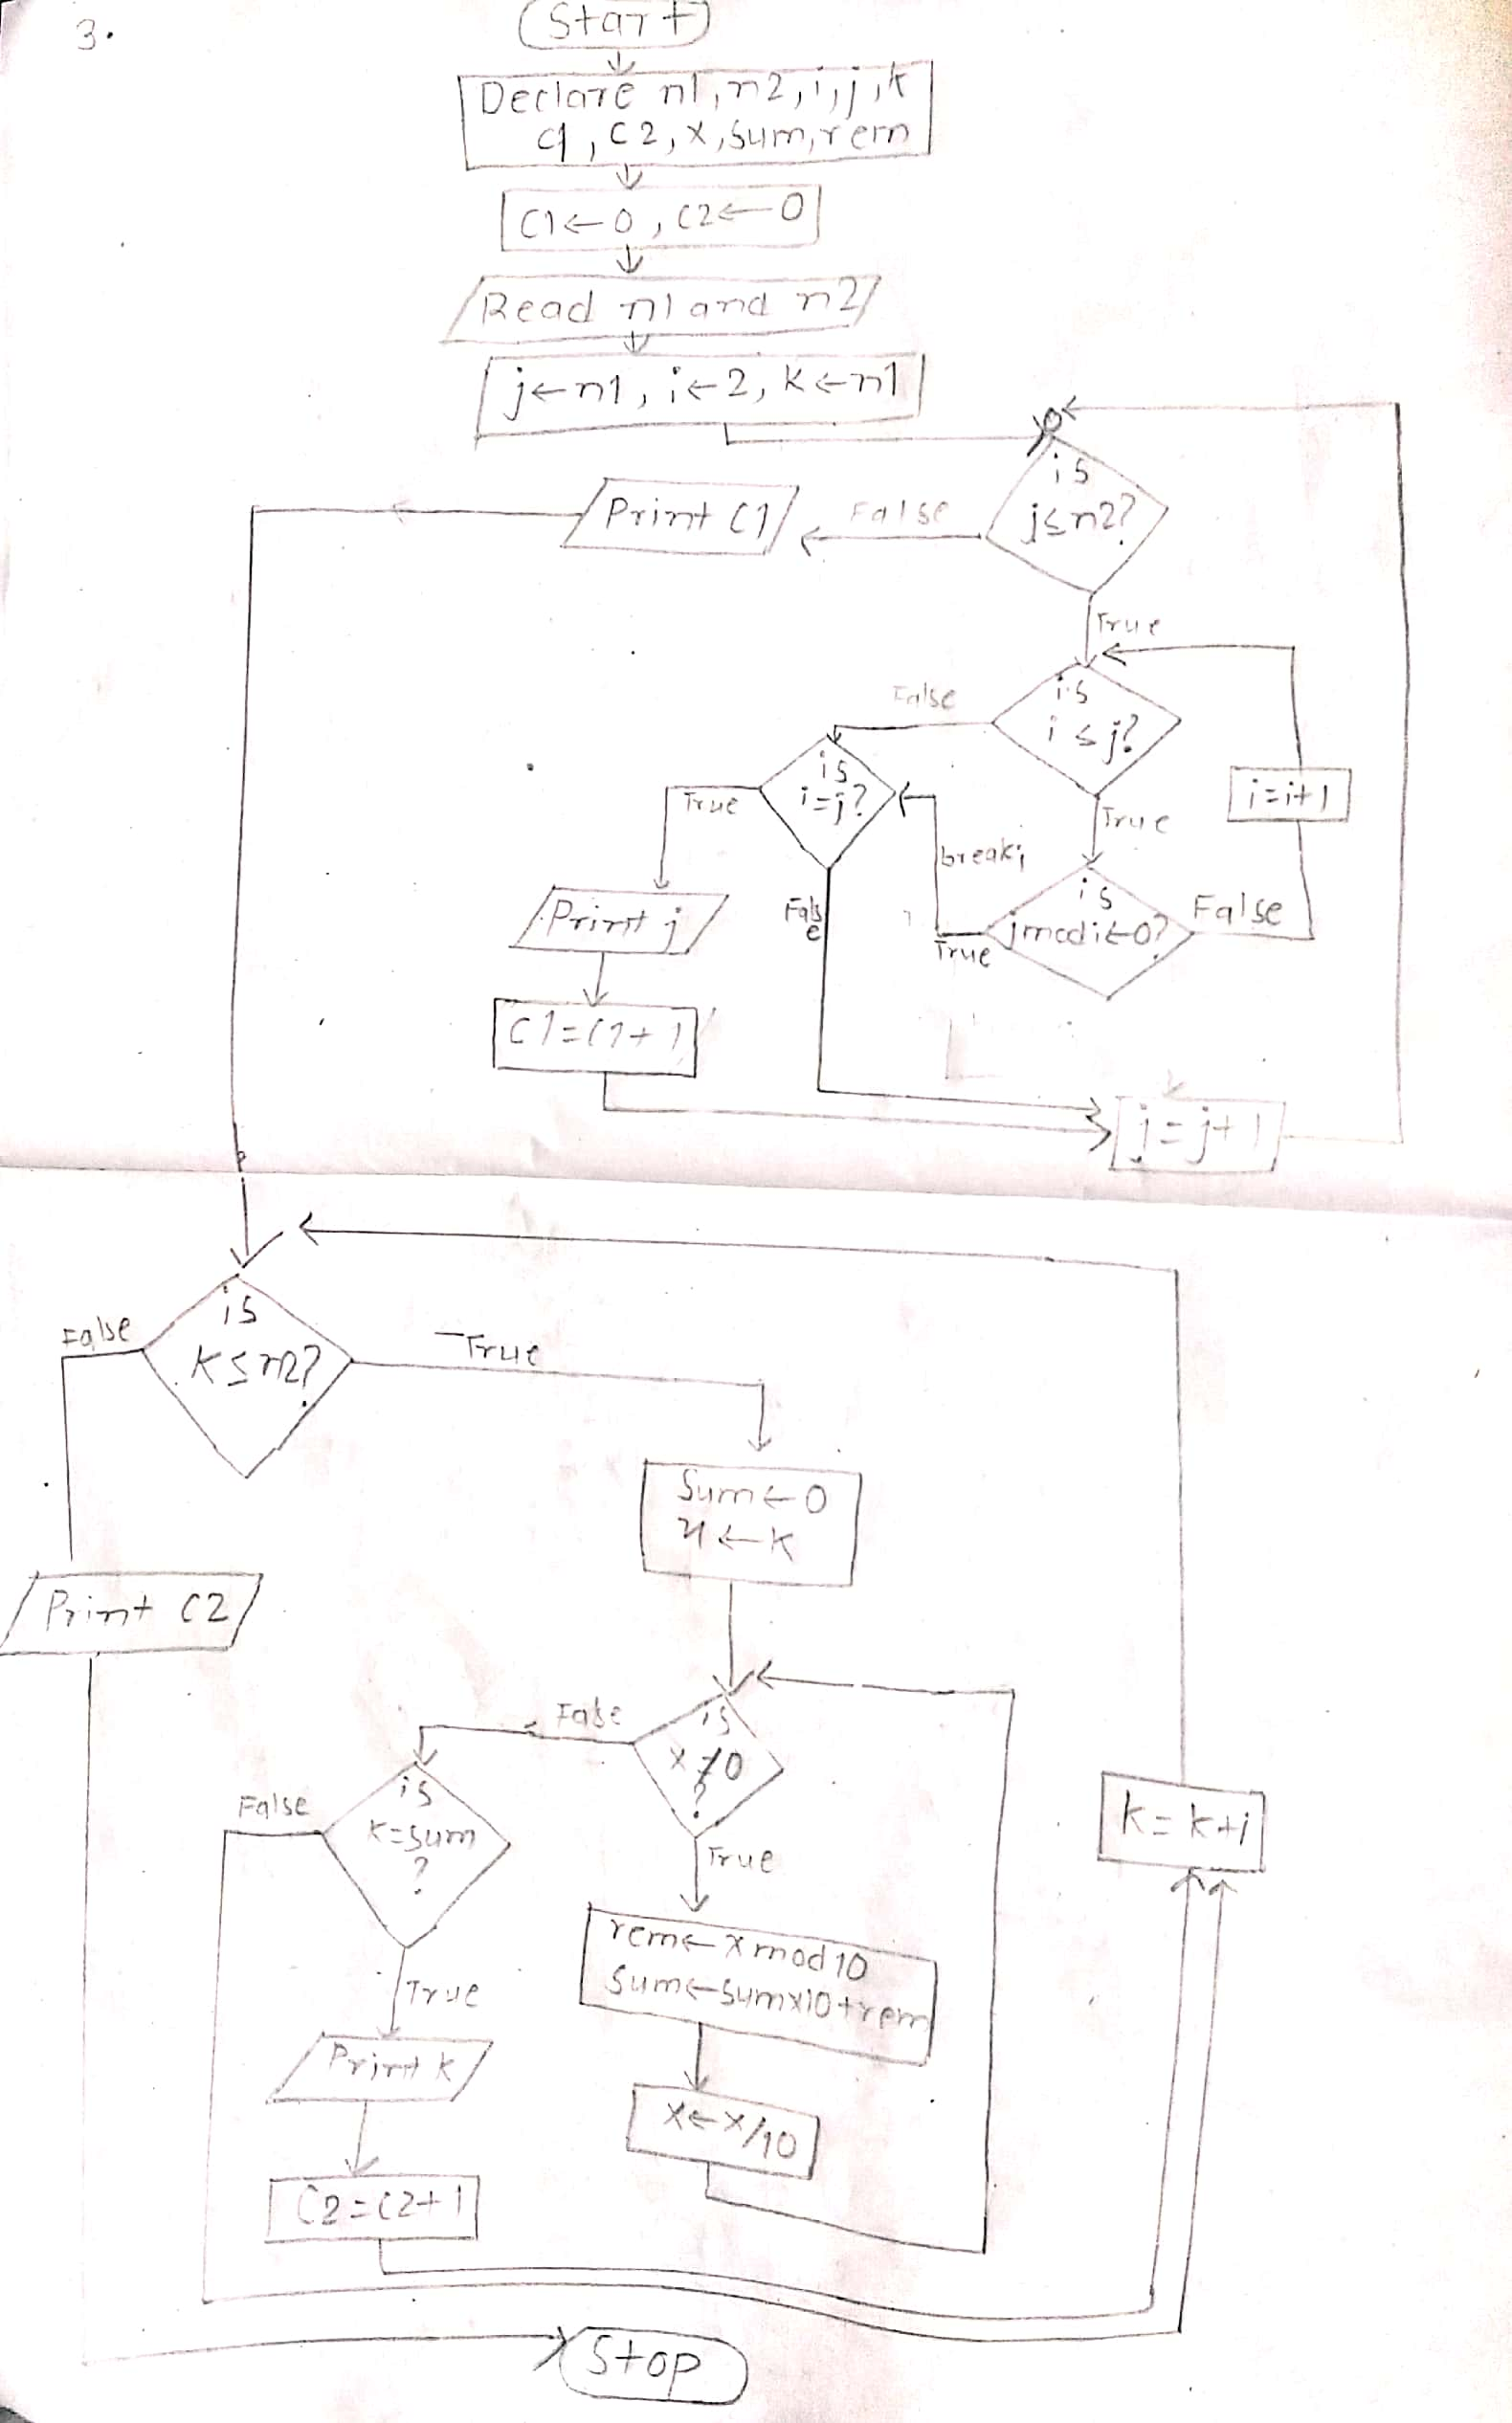 3.
Start
Declare n1, n2, i, j, k
c1, c2, x, sum, rem
C1←0, C2←0
Read n1 and n2
j←n1, i←2, k←n1
is
j≤n2?
False
Print C1
True
is
i≤j?
False
is
i=j?
True
i=i+1
True
break;
is
j mod i←0?
False
True
Print j
False
C1=C1+1
j=j+1
is
K≤n2?
False
True
Sum←0
x←K
Print C2
is
x≠0
?
False
is
K=sum
?
False
True
k=k+i
rem←x mod 10
Sum←sum×10+rem
True
Print k
x←x/10
C2=C2+1
Stop